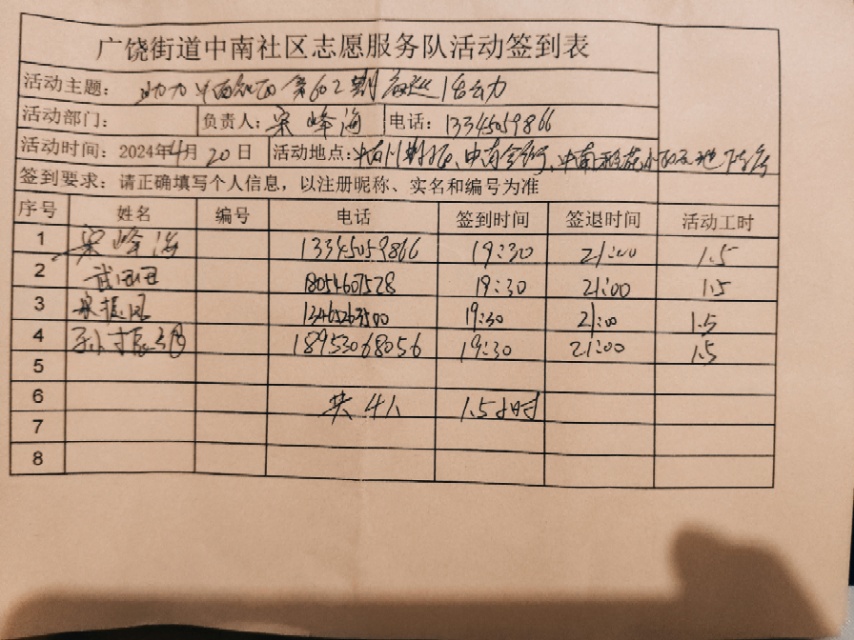 广饶街道中南社区志愿服务队活动签到表
活动主题： 助力 第602期夜巡 活动
活动部门： 负责人：宋峰海 电话：13345059866
活动时间：2024年4月20日 活动地点：中南 、中南 、中南
签到要求：请正确填写个人信息，以注册昵称、实名和编号为准
序号 姓名 编号 电话 签到时间 签退时间 活动工时
1 宋峰海 13345059866 19:30 21:00 1.5
2 武 18054607528 19:30 21:00 1.5
3 振 13465263500 19:30 21:00 1.5
4 孙振 18953068056 19:30 21:00 1.5
5
6 共4人 1.5小时
7
8